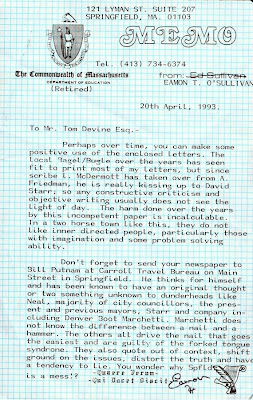 121 LYMAN ST. SUITE 207
SPRINGFIELD, MA. 01103
MEMO
Tel. (413) 734-6374
The Commonwealth of Massachusetts
DEPARTMENT OF EDUCATION
(Retired)
from: Ed Sullivan
EAMON T. O'SULLIVAN
20th April, 1993.
To Mr. Tom Devine Esq.-
Perhaps over time, you can make some
positive use of the enclosed letters. The
local Bagel/Bugle over the years has seen
fit to print most of my letters, but since
scribe L. McDermott has taken over from A.
Friedman, he is really kissing up to David
Starr; so any constructive criticism and
objective writing usually does not see the
light of day. The harm done over the years
by this incompetent paper is incalculable.
In a two horse town like this, they do not
like inner directed people, particularly those
with imagination and some problem solving
ability.
Don't forget to send your newspaper to
Bill Putnam at Carroll Travel Bureau on Main
Street in Springfield. He thinks for himself
and has been known to have an original thought
or two something unknown to dunderheads like
Neal, majority of city councillors, the pres-
ent and previous mayors, Starr and company in-
cluding Denver Boot Marchetti. Marchetti does
not know the difference between a nail and a
hammer. The others all drive the nail that goes
the easiest and are guilty of the forked tongue
syndrome. They also quote out of context, shift
ground on the issues, distort the truth and have
a tendency to lie. You wonder why Spfld.
is a mess!?
Eamon